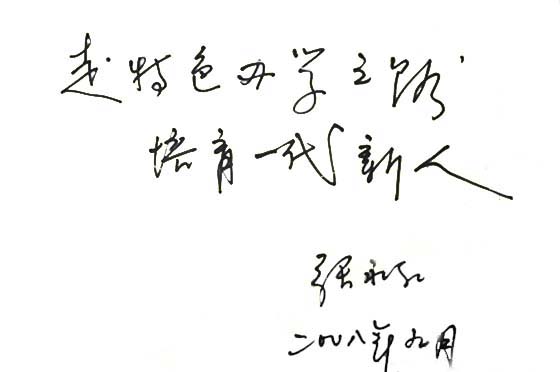 走特色办学之路
培育一代新人
张永
二〇〇八年九月